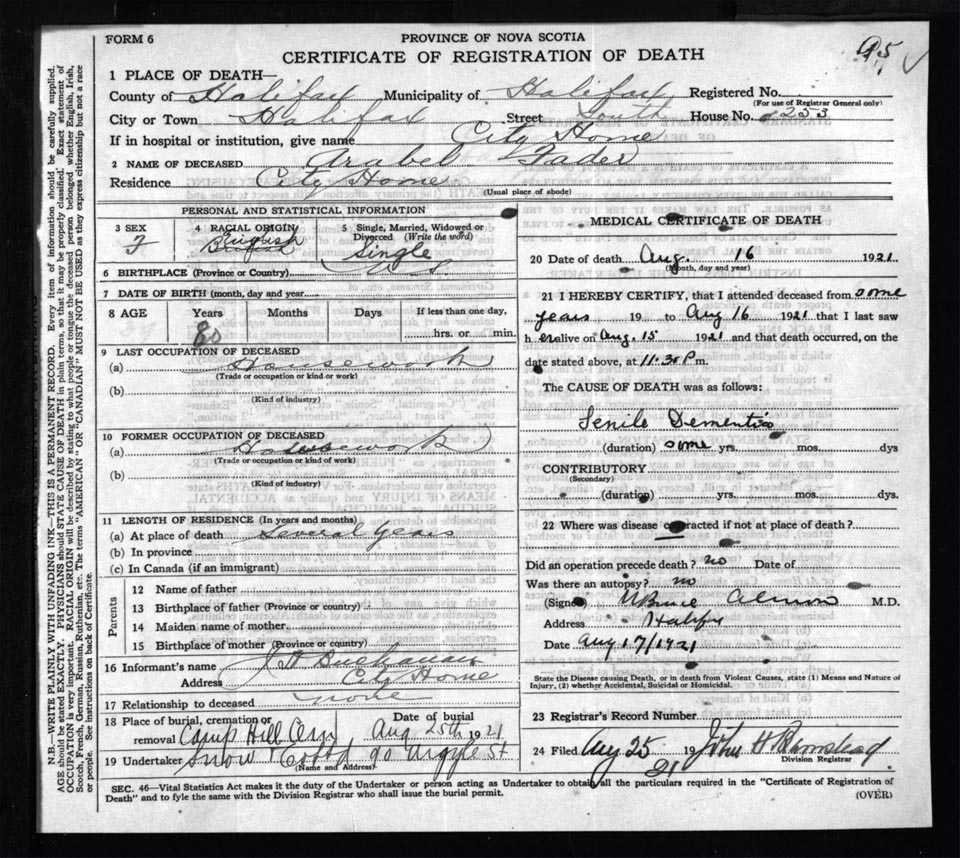 FORM 6
PROVINCE OF NOVA SCOTIA
CERTIFICATE OF REGISTRATION OF DEATH
95
1 PLACE OF DEATH—
County of Halifax Municipality of Halifax Registered No.
(For use of Registrar General only)
City or Town Halifax Street South House No. 253
If in hospital or institution, give name City Home
2 NAME OF DECEASED Arabel Fader
Residence City Home
(Usual place of abode)
PERSONAL AND STATISTICAL INFORMATION
3 SEX F
4 RACIAL ORIGIN English
5 Single, Married, Widowed or Divorced (Write the word) Single
6 BIRTHPLACE (Province or Country)
7 DATE OF BIRTH (month, day and year)
8 AGE Years 80 Months Days If less than one day, hrs. or min.
9 LAST OCCUPATION OF DECEASED
(a) Housework
(Trade or occupation or kind or work)
(b)
(Kind of industry)
10 FORMER OCCUPATION OF DECEASED
(a) Housework
(Trade or occupation or kind of work)
(b)
(Kind of industry)
11 LENGTH OF RESIDENCE (In years and months)
(a) At place of death Several years
(b) In province
(c) In Canada (if an immigrant)
Parents
12 Name of father
13 Birthplace of father (Province or country)
14 Maiden name of mother
15 Birthplace of mother (Province or country)
16 Informant's name Buchanan
Address City Home
17 Relationship to deceased none
18 Place of burial, cremation or removal Camp Hill Cem Date of burial Aug 25th 1921
19 Undertaker Snow 90 Argyle St
(Name and Address)
MEDICAL CERTIFICATE OF DEATH
20 Date of death Aug. 16 1921
(Month, day and year)
21 I HEREBY CERTIFY, that I attended deceased from some
years 19 to Aug 16 1921 that I last saw
her alive on Aug. 15 1921 and that death occurred, on the
date stated above, at 11.30 P.m.
The CAUSE OF DEATH was as follows:
Senile Dementia
(duration) some yrs. mos. dys
CONTRIBUTORY
(Secondary)
(duration) yrs. mos. dys.
22 Where was disease contracted if not at place of death?
Did an operation precede death? no Date of
Was there an autopsy? no
(Signed) Almon M.D.
Address Halifax
Date Aug 17/1921
State the Disease causing Death, or in death from Violent Causes, state (1) Means and Nature of
Injury, (2) whether Accidental, Suicidal or Homicidal.
23 Registrar's Record Number
24 Filed Aug 25 19 21 John H
Division Registrar
SEC. 46—Vital Statistics Act makes it the duty of the Undertaker or person acting as Undertaker to obtain all the particulars required in the "Certificate of Registration of
Death" and to fyle the same with the Division Registrar who shall issue the burial permit.
(OVER)
N.B.—WRITE PLAINLY WITH UNFADING INK—THIS IS A PERMANENT RECORD. Every item of information should be carefully supplied.
AGE should be stated EXACTLY. PHYSICIANS should STATE CAUSE OF DEATH in plain terms, so that it may be properly classified. Exact statement of
OCCUPATION is very important. RACIAL ORIGIN will be described by stating to what people or tongue the deceased person belonged whether English, Irish,
Scotch, French, German, Russian, Ruthenian, etc. The terms "AMERICAN" OR "CANADIAN" MUST NOT BE USED as they express citizenship but not a race
or people. See instructions on back of Certificate.